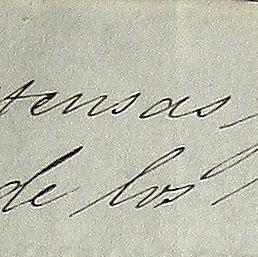 tensas,
de los